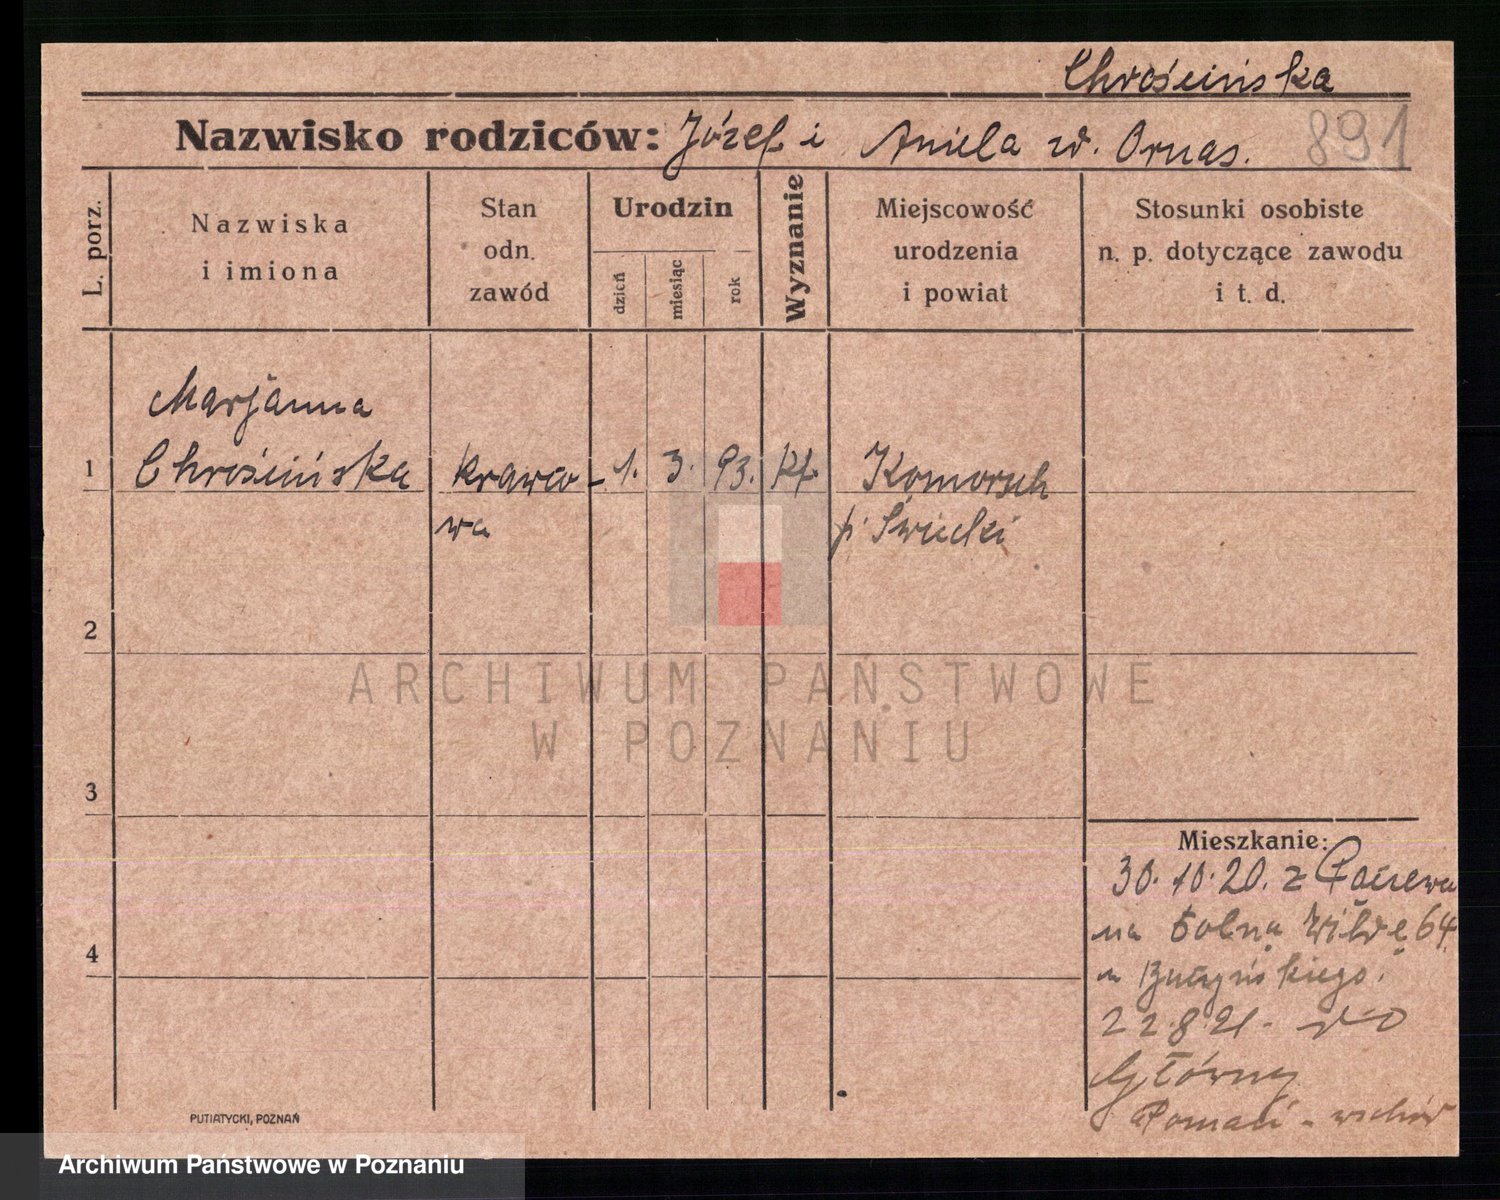 Chrościńska
Nazwisko rodziców: Józef i Aniela zd. Ornas.
891
L. porz.
Nazwiska
i imiona
Stan
odn.
zawód
Urodzin
dzień
miesiąc
rok
Wyznanie
Miejscowość
urodzenia
i powiat
Stosunki osobiste
n. p. dotyczące zawodu
i t. d.
Marjanna
1 Chrościńska krawco- 1. 3. 93. Kt. Komorsk
wa p. Świecki
2
ARCHIWUM PAŃSTWOWE
W POZNANIU
3
Mieszkanie:
30.10.20. z
na Dolną Wildę 64.
4
22.8.21. do
Główny
Poznań - wschód
PUTIATYCKI, POZNAŃ
Archiwum Państwowe w Poznaniu